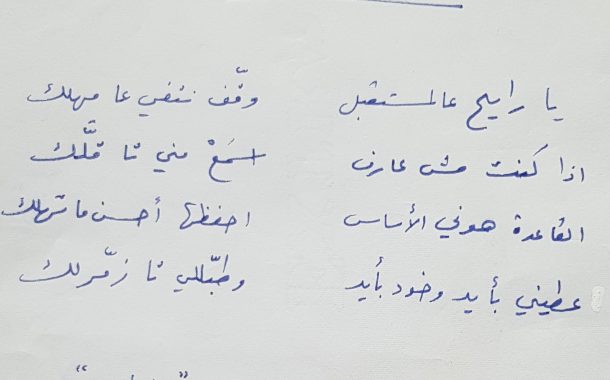 يا رايح عالمستقبل وقّف نتفي عا مهلك
اذا كنت مش عارف اسمَعْ مني تا قلَّك
القاعدة هوني الأساس احفظها أحسن ما تهلك
عطيني بأيد وخود بأيد وطبّللي تا زمّرلك